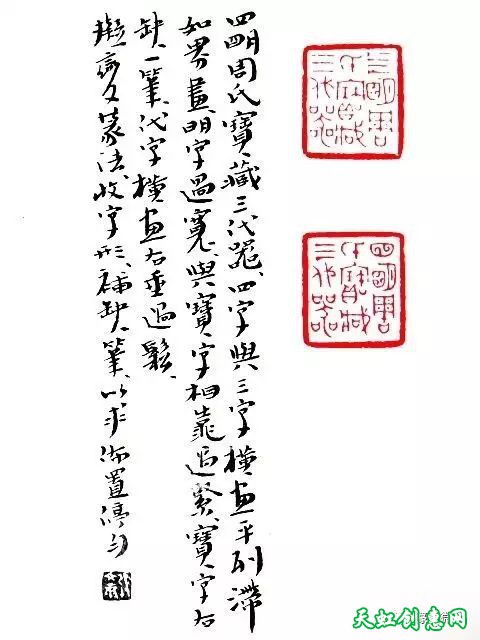 四明周氏寶藏三代器、四字與三字橫畫平列滯
如界畫明字過寬與寶字相靠過緊寶字右
缺一筆、代字橫畫右垂過鬆、
擬變篆法收字形補缺筆以求佈置停勻
四明周氏寶藏三代器
四明周氏寶藏三代器
天虹创意网